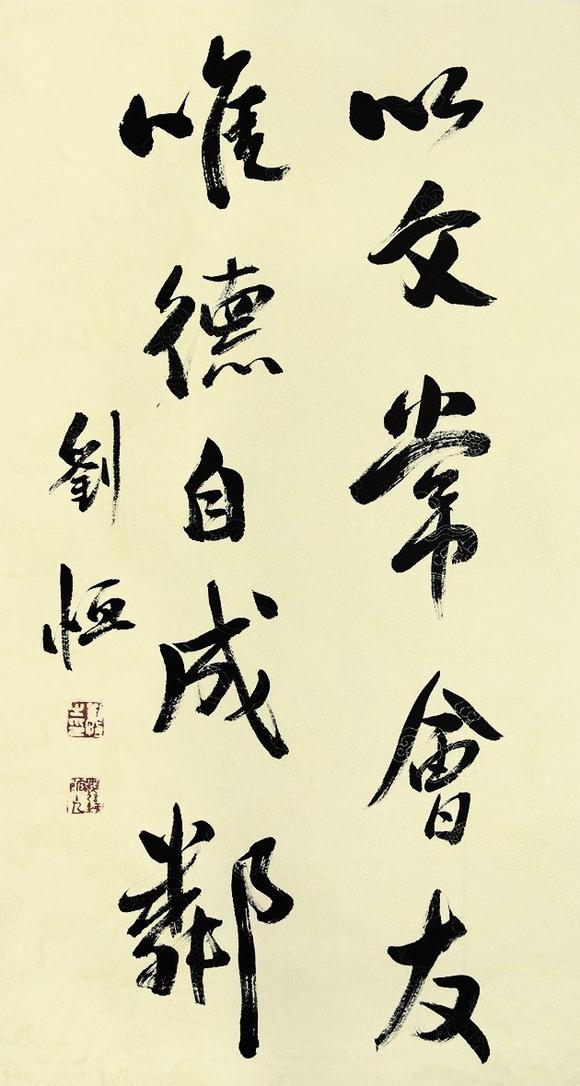 以文常會友
唯德自成鄰
劉恒